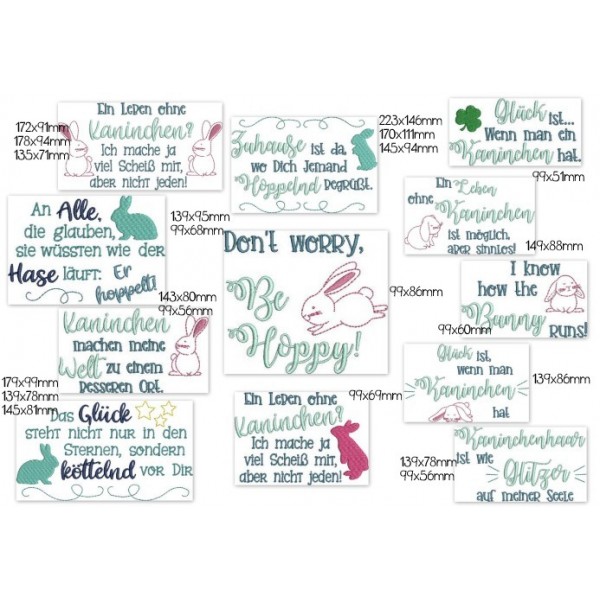 Ein Leben ohne
Kaninchen?
Ich mache ja
viel Scheiß mit,
aber nicht jeden!
172x91mm
178x94mm
135x71mm
Zuhause ist da,
wo Dich Jemand
Hoppelnd
begrüßt.
223x146mm
170x111mm
145x94mm
Glück
ist...
Wenn man ein
Kaninchen hat.
99x51mm
An Alle,
die glauben,
sie wüssten wie der
Hase läuft: Er
hoppelt!
139x95mm
99x68mm
Don't worry,
Be
Hoppy!
99x86mm
Ein Leben
ohne Kaninchen
ist möglich,
aber sinnlos!
149x88mm
I know
how the
Bunny
runs!
99x60mm
Kaninchen
machen meine
Welt zu einem
besseren Ort.
143x80mm
99x56mm
Glück
ist,
wenn man
Kaninchen
hat
139x86mm
Das Glück
steht nicht nur in den
Sternen, sondern
köttelnd vor Dir
179x99mm
139x78mm
145x81mm
Ein Leben ohne
Kaninchen?
Ich mache ja
viel Scheiß mit,
aber nicht jeden!
99x69mm
Kaninchenhaar
ist wie
Glitzer
auf meiner Seele
139x78mm
99x56mm